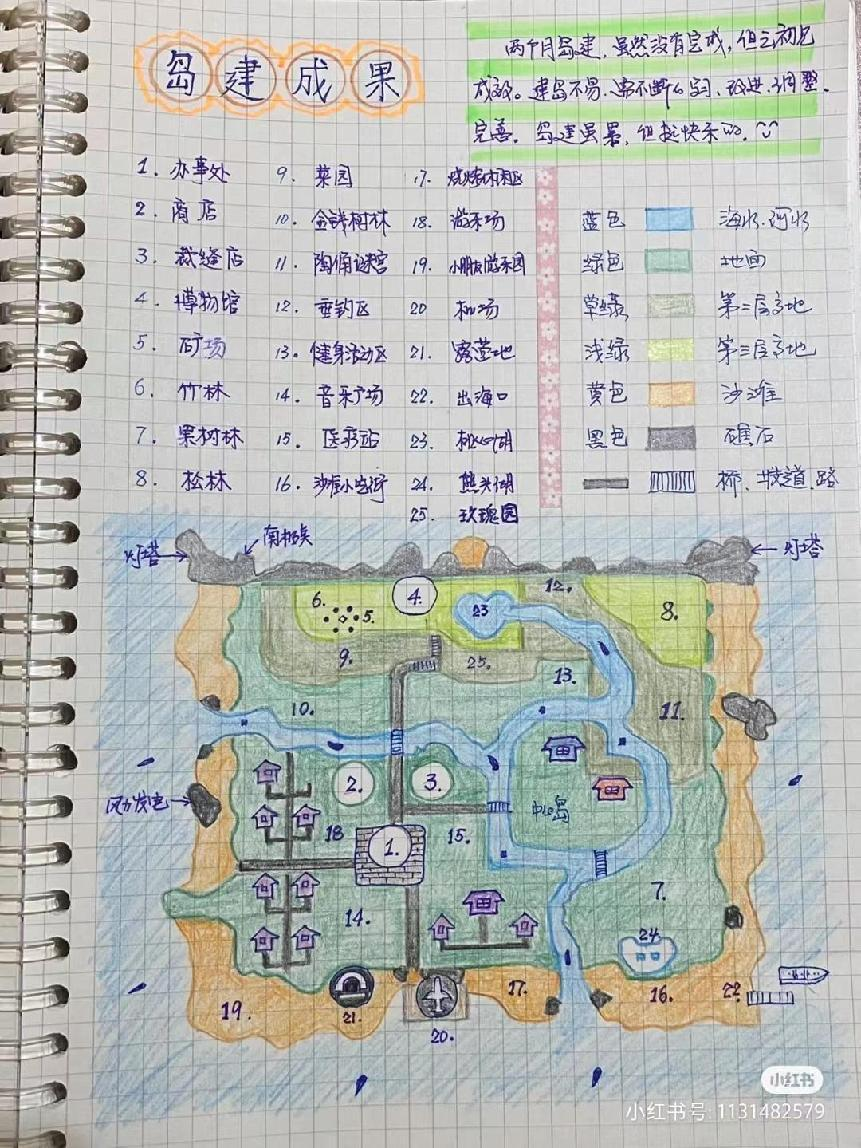 岛建成果
两个月岛建,虽然没有完成,但已初见
成效。建岛不易,需不断学习、改进、调整、
完善。岛建虽累,但挺快乐的。
1. 办事处
2. 商店
3. 裁缝店
4. 博物馆
5. 矿场
6. 竹林
7. 果树林
8. 松林
9. 菜园
10. 金钱树林
11. 陶俑迷宫
12. 垂钓区
13. 健身活动区
14. 音乐广场
15. 医疗站
16. 沙滩小吃街
17. 烧烤休闲区
18. 游乐场
19. 小朋友游乐园
20 机场
21. 露营地
22. 出海口
23. 桃心湖
24. 熊头湖
25. 玫瑰园
蓝色 海水、河水
绿色 地面
草绿 第二层高地
浅绿 第三层高地
黄色 沙滩
黑色 礁石
桥、坡道、路
灯塔
南极美
灯塔
6.
5.
4.
23
12.
8.
9.
25.
13.
10.
11.
2.
3.
风力发电
中心岛
18
1.
15.
7.
14.
24
19.
21.
20.
17.
16.
22.
小红书
小红书号: 1131482579